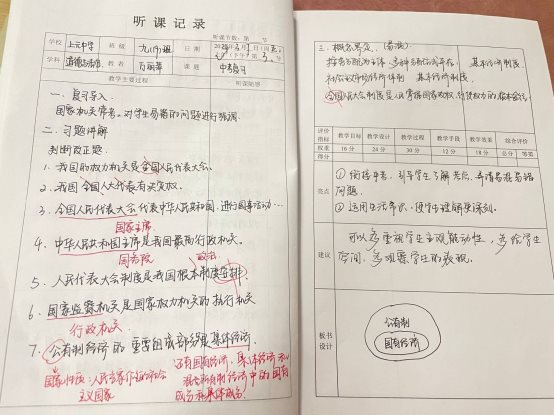 听课记录
听课节数：第 节
学校 上元中学 班级 九(1)班 日期
学科 道德与法治 教师 课题 中考复习
教学主要过程 听课随感
一、复习导入
国家机关常考。对学生易错的问题进行强调。
二、习题讲解
判断改正题。
1、我国的权力机关是全国人民代表大会。
2、我国全国人大代表有决定权。
3、全国人民代表大会代表中华人民共和国，进行国事活动…
国家主席
4、中华人民共和国主席是我国最高行政机关。
国务院
政治
5、人民代表大会制度是我国根本制度安排
6、国家监察机关是国家权力机关的执行机关
行政机关
7、公有制经济的重要组成部分是集体经济。
国家性质：人民当家作主的社会
主义国家
还有国有经济、集体经济和
混合所有制经济中的国有
成分和集体成分。
三、概念界定。
基本经济制度
社会主义市场经济体制 基本经济制度。
全国人民代表大会制度是人民掌握国家政权、行使权力的根本途径
评价指标 教学目标 教学设计 教学过程 教学手段 教学效果 综合评价
权重 16分 24分 30分 12分 18分 总分 等第
得分
亮点
① 衔接中考，引导学生了解考点，弄清易混易错
问题。
② 运用生活常识，使学生理解更深刻。
建议
可以多重视学生主观能动性，多给学生
空间，多观察学生的表现。
板书设计
公有制
国有经济